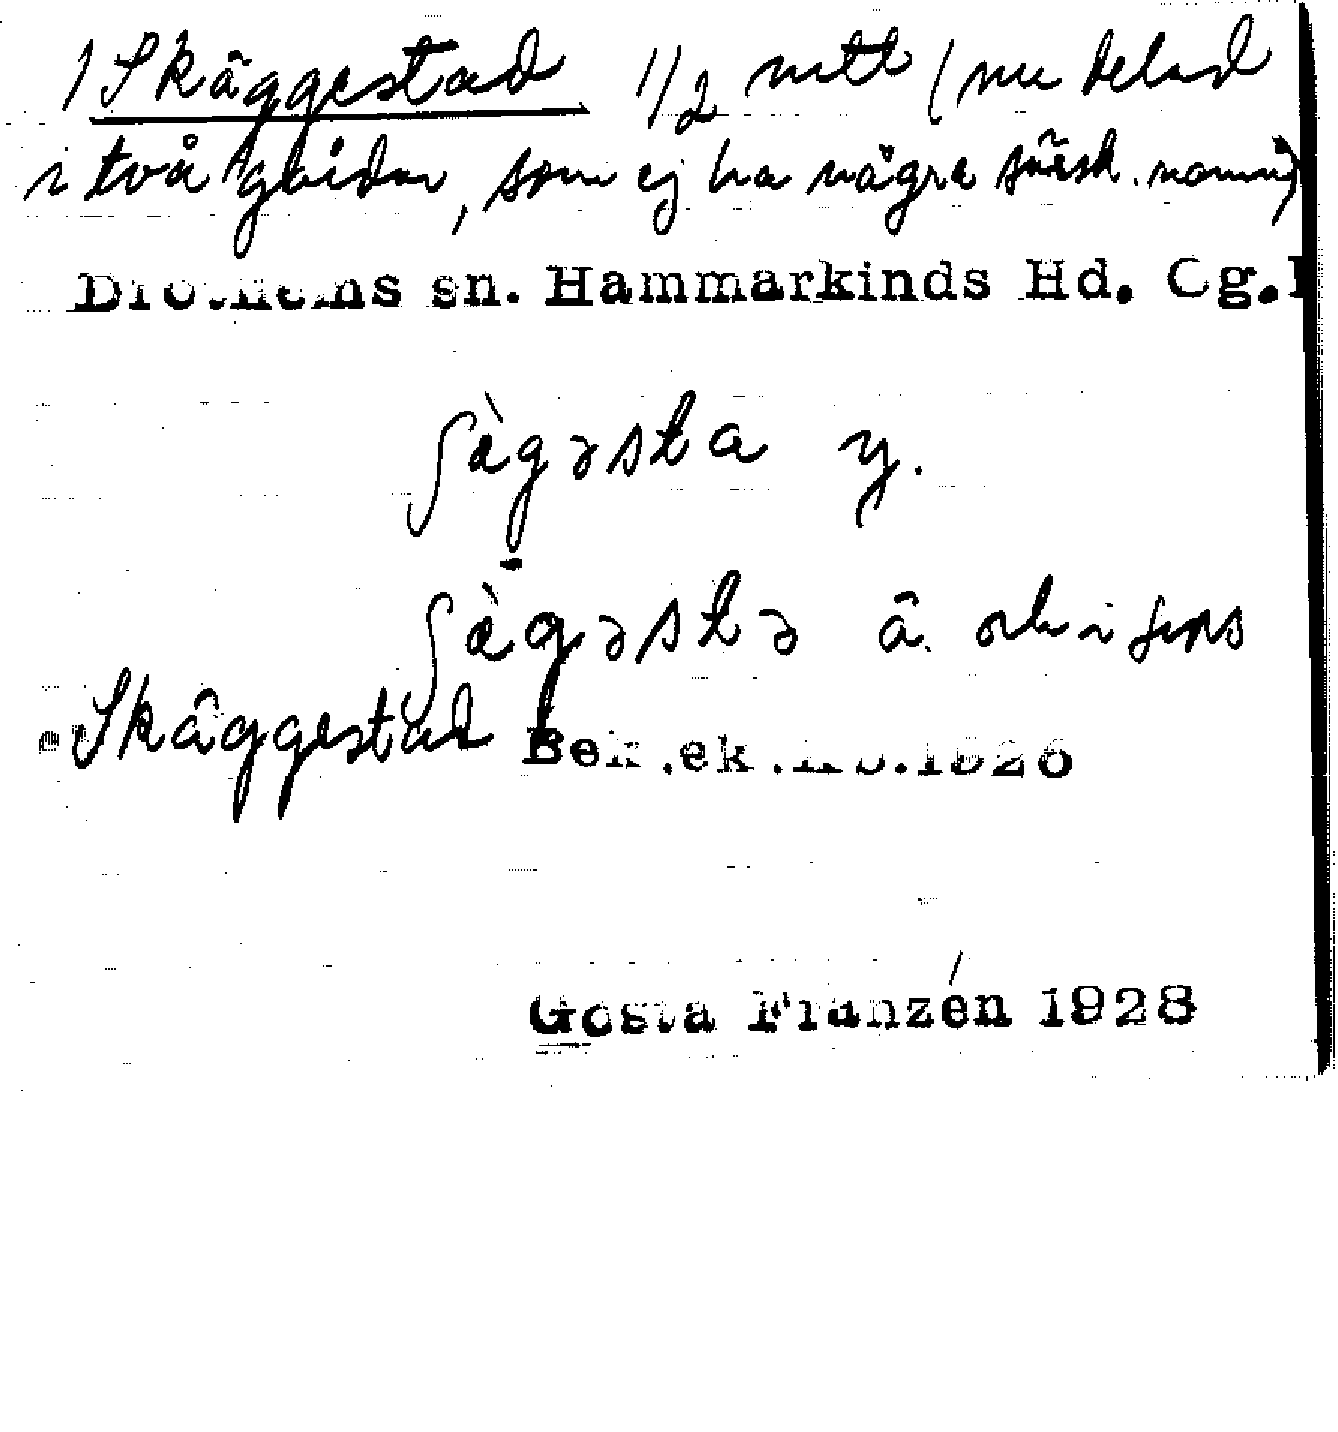 1 Skäggestad 1/2 mtl (nu delad
i två gårdar, som ej ha några särsk. namn)
Drothems sn. Hammarkinds Hd. Ög.
ʃàgəsta y.
ʃàgəstə ä. och i sms
Skäggestad Bek.ek.kb.1826
Gösta Franzén 1928